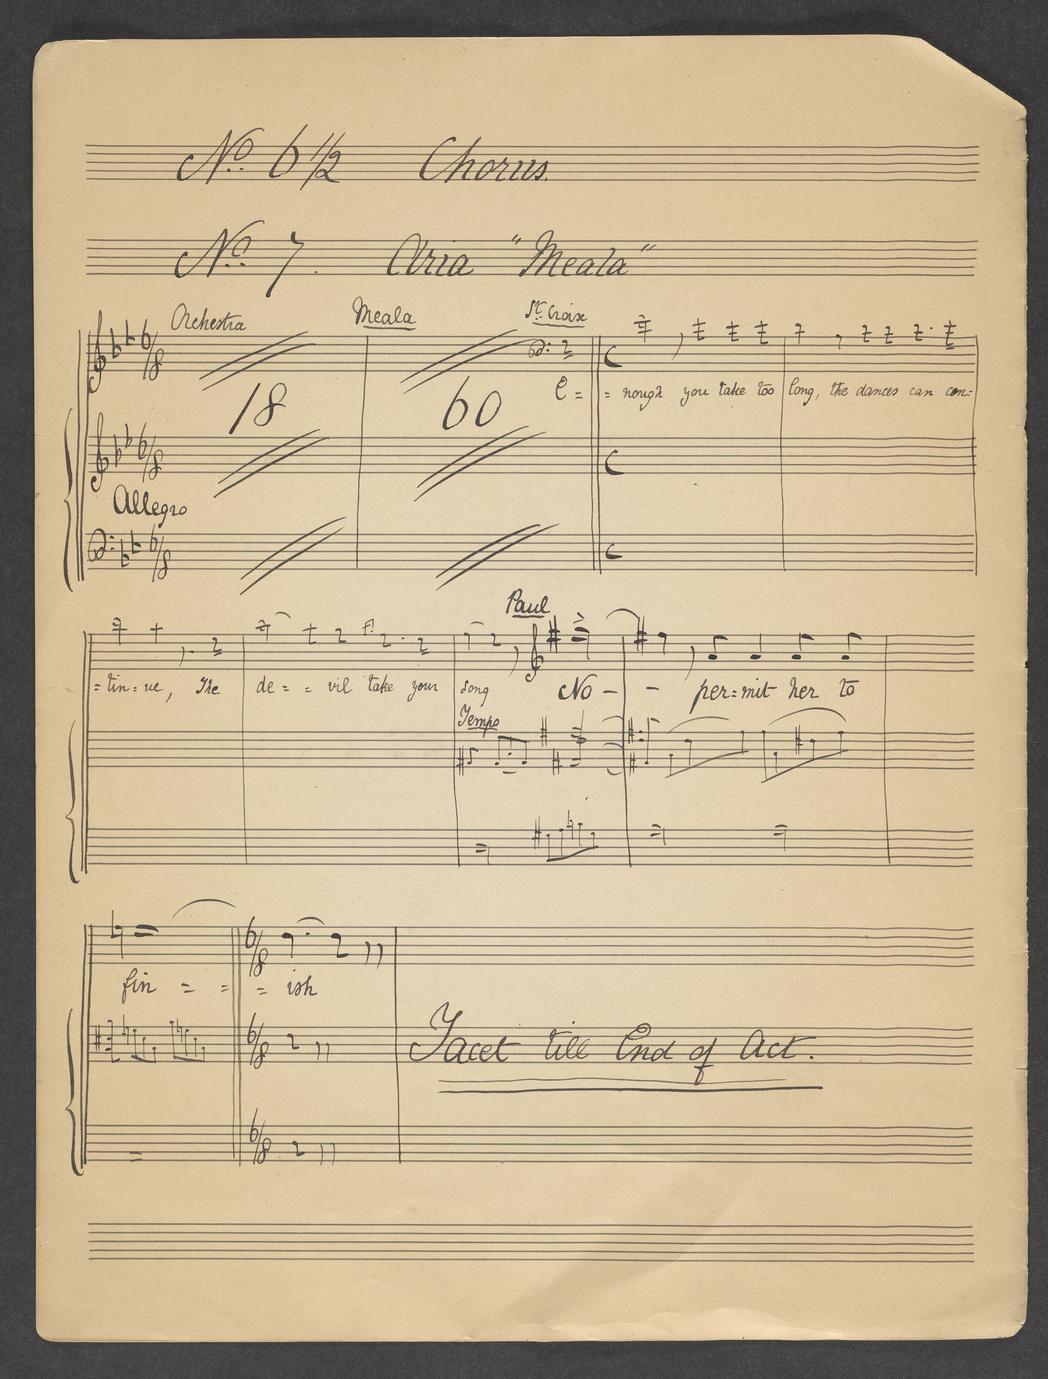 No. 6 1/2 Chorus.
No. 7. Aria "Meala"
Orchestra Meala St. Croix
18 60
E = = nough you take too long, the dances can con=
Allegro
Paul
= tin = ue, The de = = vil take your song No - - per=mit her to
Tempo
fin = = = ish
Tacet till End of Act.